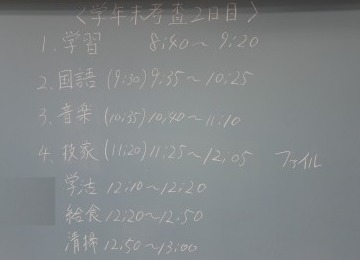 〈学年末考査2日目〉
1. 学習 8:40〜9:20
2. 国語 (9:30) 9:35〜10:25
3. 音楽 (10:35) 10:40〜11:10
4. 技家 (11:20) 11:25〜12:05 ファイル
学活 12:10〜12:20
給食 12:20〜12:50
清掃 12:50〜13:00